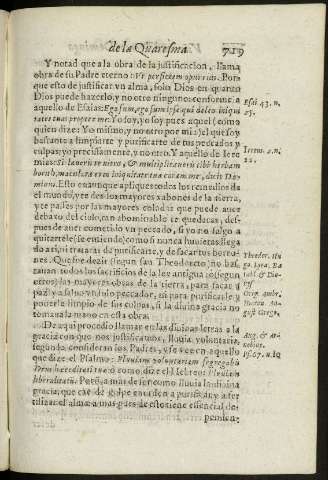 de la Quaresma
719
Y notad que a la obra de la justificacion, llama
obra de su Padre eterno: Vt perficiam opus eius. Por-
que esto de justificar vn alma, solo Dios en quanto
Dios puede hazerlo, y no otro ninguno: conforme a
aquello de Esaias: Ego sum, ego sum ipse qui deleo iniqui
tates tuas propter me: Yo soy, yo soy pues aquel (como
quien dize: Yo mismo, y no otro por mi:) el que soy
bastante a limpiarte y purificarte de tus peccados y
culpas: yo precisamente, y no otro. Y aquello de Iere
mias: Si laueris te nitro, & multiplicaueris tibi herbam
borith, maculata es in iniquitate tua coram me, dicit Do-
minus. Esto es aunque apliques todos los remedios de
el mundo, y te des los mayores xabones de la tierra,
y te passes por las mayores que puede auer
debaxo del cielo, tan abominable te quedaras, des-
pues de auer cometido vn peccado, si yo no salgo a
quitartele (se entiende) como si nunca huuieras llega
do a purificarte, y de sacarte horro-
nes. Que fue dezir (segun san Theodoreto) no bas-
taran todos los sacrificios de la ley antigua, (o segun
otros) las mayores obras de la tierra, para sacar a
paz y a saluo vn solo peccador, ni para purificarle y
ponerle limpio de sus culpas, si la diuina gracia no
tomara la mano en esta obra.
De aqui procedio llamar en las diuinas letras a la
gracia con que nos justificamos, lluuia, voluntaria,
segun la consideran los Padres, y se ve en aquello
que dize el Psalmo: Pluuiam voluntariam segregabis
Deus hereditati tuae: o como dize el Hebreo: Pluuiam
liberalitatis. Pero, a mas de ser como lluuia la diuina
gracia, que cae de golpe en orden a purificar, y a fer
tilizar el alma: a mas pues de esto tiene essencial de-
penden-
Esai. 43. n.
25.
Ierem. 2. n.
22.
Theodor. Hu
go
Orig. Ambr.
August. Grego.
Aug. & Ar
nobius.
Ps. 67. n. 10